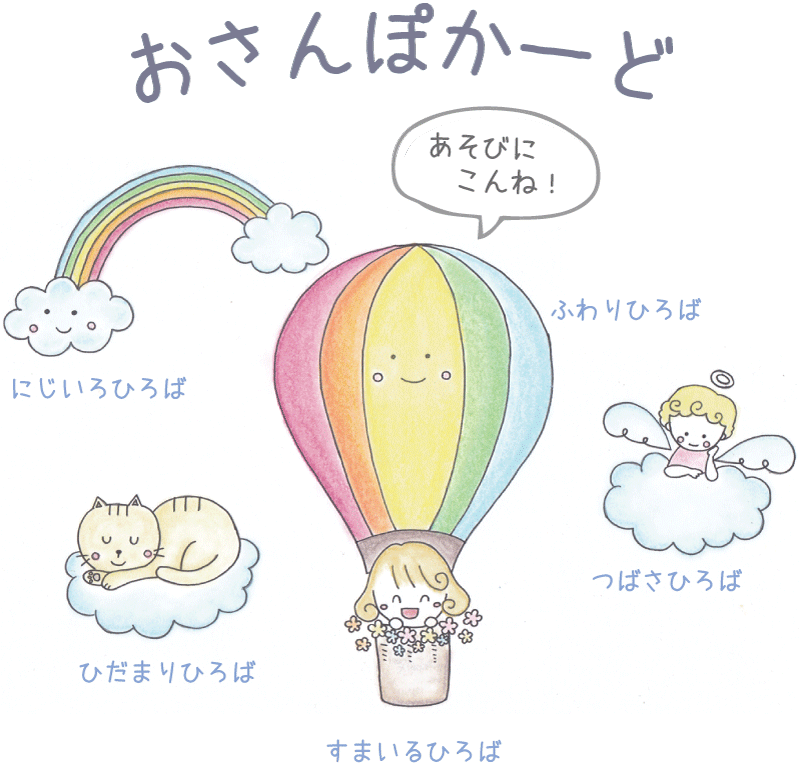 おさんぽかーど
あそびに
こんね！
ふわりひろば
にじいろひろば
つばさひろば
ひだまりひろば
すまいるひろば